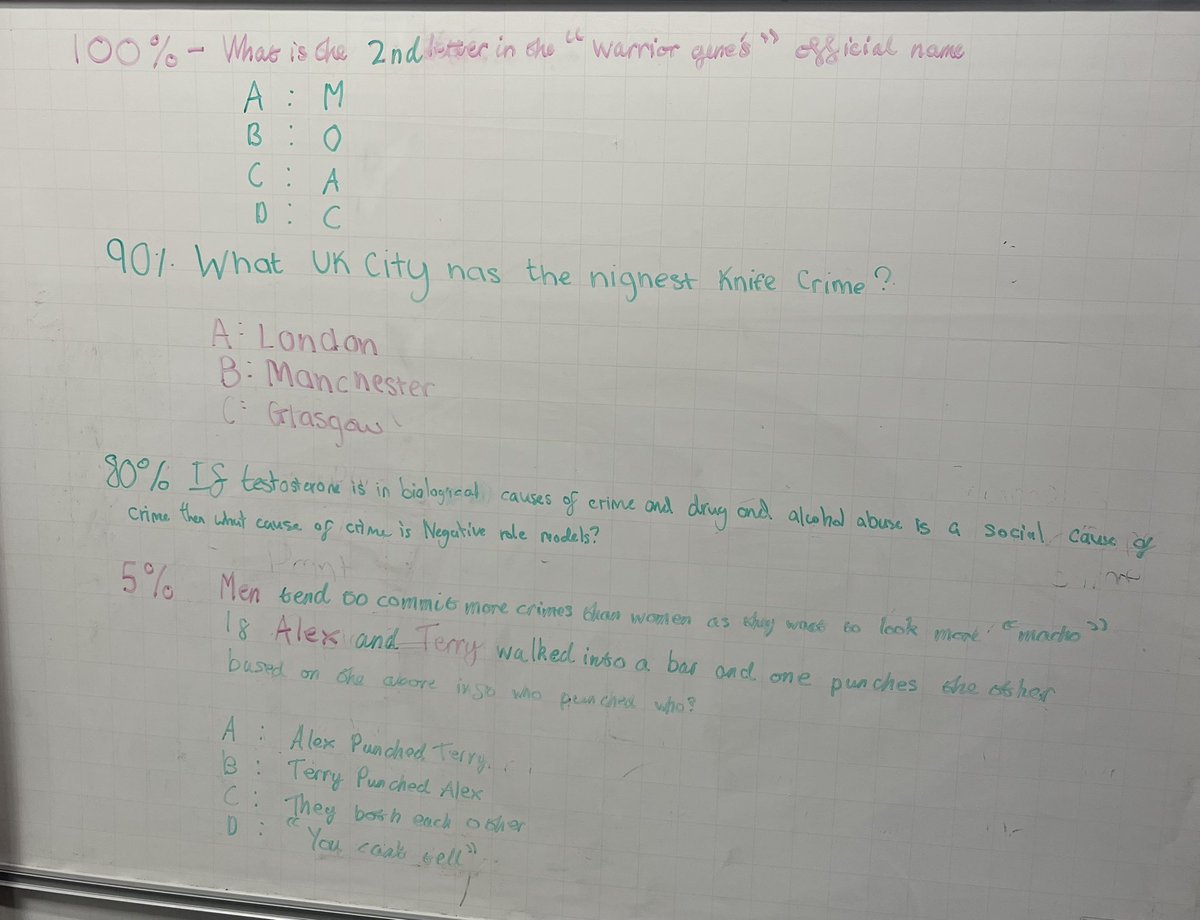 100% - What is the 2nd letter in the "warrior gene's" official name
A : M
B : O
C : A
D : C
90% What UK City has the highest Knife Crime?
A: London
B: Manchester
C: Glasgow
80% If testosterone is in biological causes of crime and drug and alcohol abuse is a social cause of
crime then what cause of crime is Negative role models?
5% Men tend to commit more crimes than women as they want to look more "macho"
If Alex and Terry walked into a bar and one punches the other
based on the above info who punched who?
A : Alex Punched Terry.
B : Terry Punched Alex
C : They both each other
D : "You can't tell"